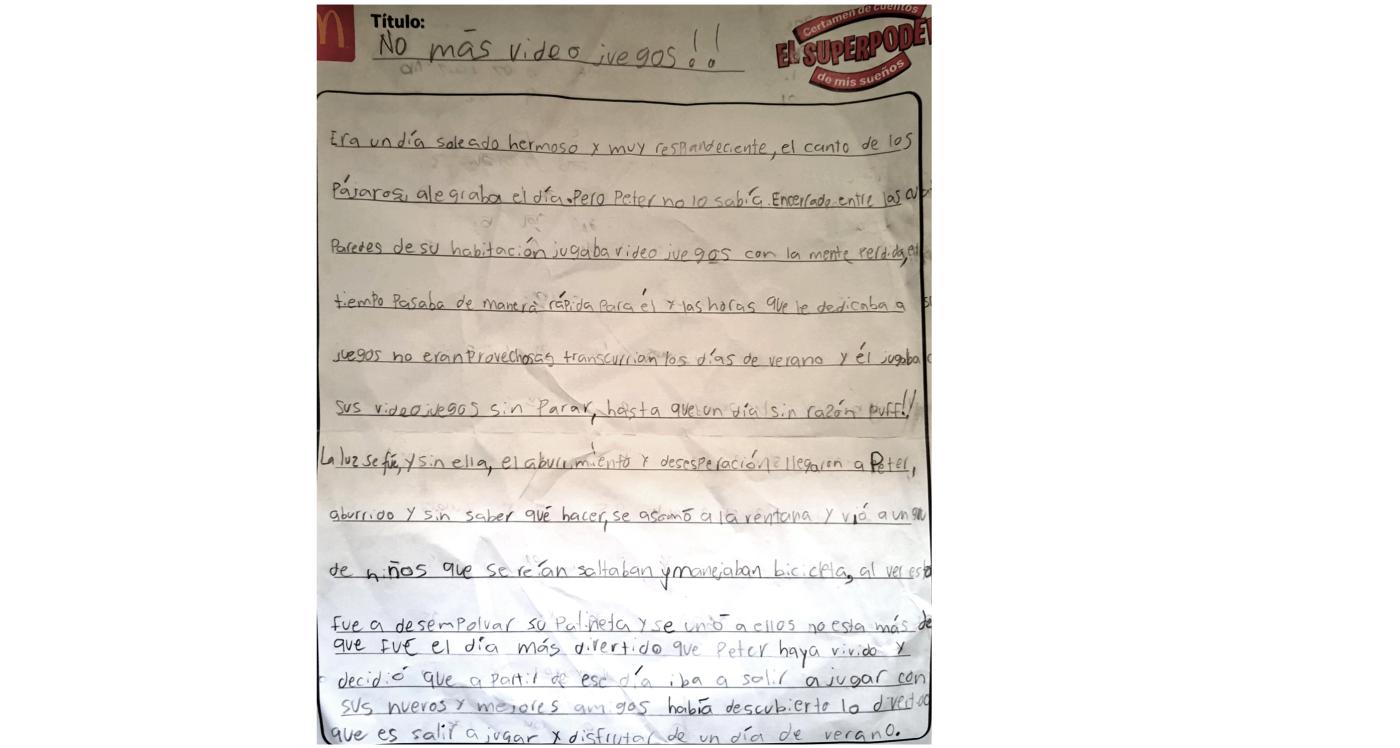 Título:
No más video juegos!!
Certamen de cuentos
EL SUPERPODE
de mis sueños
Era un día soleado hermoso y muy resplandeciente, el canto de los
Pájaros, alegraba el día. Pero Peter no lo sabía. Encerrado entre las
Paredes de su habitación jugaba video juegos con la mente perdida, el
tiempo Pasaba de manera rápida Para él y las horas que le dedicaba a
juegos no eran Provechosas transcurrian los días de verano y él jugaba
sus videojuegos sin Parar, hasta que un día sin razón puff!!
La luz se fué, y sin ella, el aburrimiento y desesperación llegaron a Peter,
aburrido y sin saber qué hacer, se asomó a la ventana y vió a un
de niños que se reían saltaban y manejaban bicicleta, al ver esto
fue a desempolvar su Patineta y se unió a ellos no esta más de
que fue el día más divertido que Peter haya vivido y
decidió que a partir de ese día iba a salir a jugar con
sus nuevos y mejores amigos había descubierto lo
que es salir a jugar y disfrutar de un día de verano.